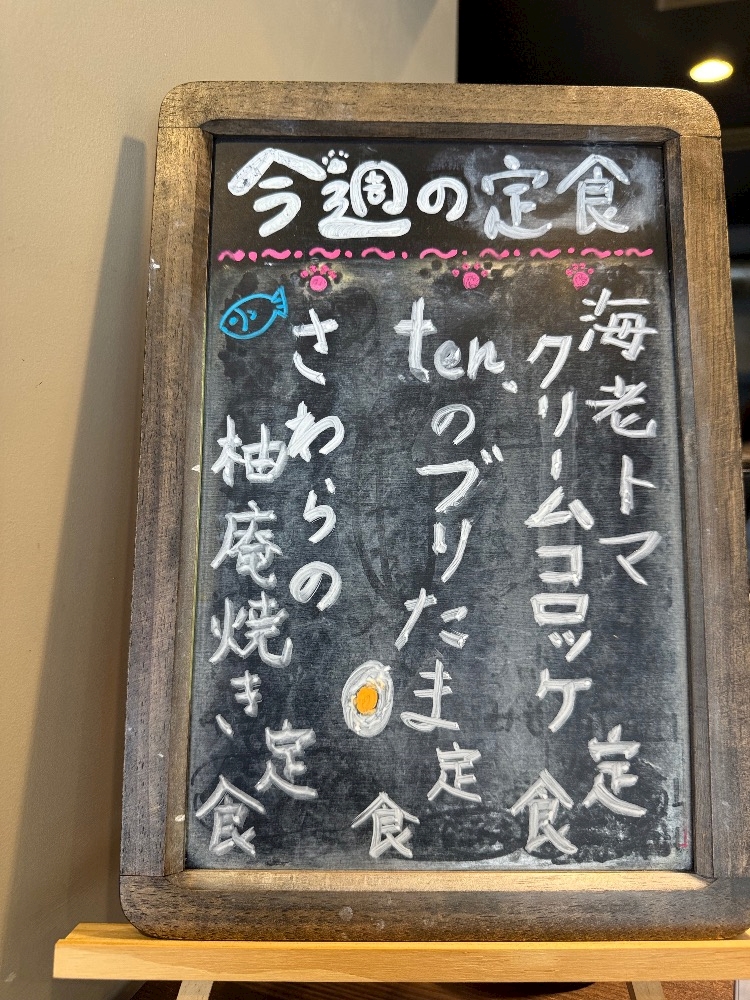 今週の定食
海老トマ
クリームコロッケ
定食
ten.のブリたま
定食
さわらの
柚庵焼き、
定食